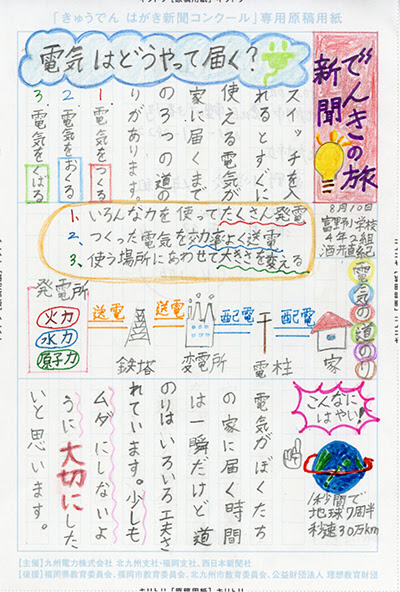 「きゅうでん はがき新聞コンクール」専用原稿用紙
でんきの旅
新聞
8月10日
富野小学校
4年2組
電気はどうやって届く?
スイッチを入
れるとすぐに
使える電気が
家に届くまで
の3つの道の
りがあります。
1. 電気をつくる
2. 電気をおくる
3. 電気をくばる
1. いろんな力を使ってたくさん発電
2. つくった電気を効率よく送電
3. 使う場所にあわせて大きさを変える
電気の道のり
発電所
火力
水力
原子力
送電
鉄塔
送電
変電所
配電
電柱
配電
家
こんなに
はやい!
1秒間で
地球7周半
秒速30万km
電気がぼくたち
の家に届く時間
は一瞬だけど道
のりはいろいろ工夫さ
れています。少しも
ムダにしないよ
うに大切にした
いと思います。
【主催】九州電力株式会社 北九州支社・福岡支社、西日本新聞社
【後援】福岡県教育委員会、福岡市教育委員会、北九州市教育委員会、公益財団法人 理想教育財団